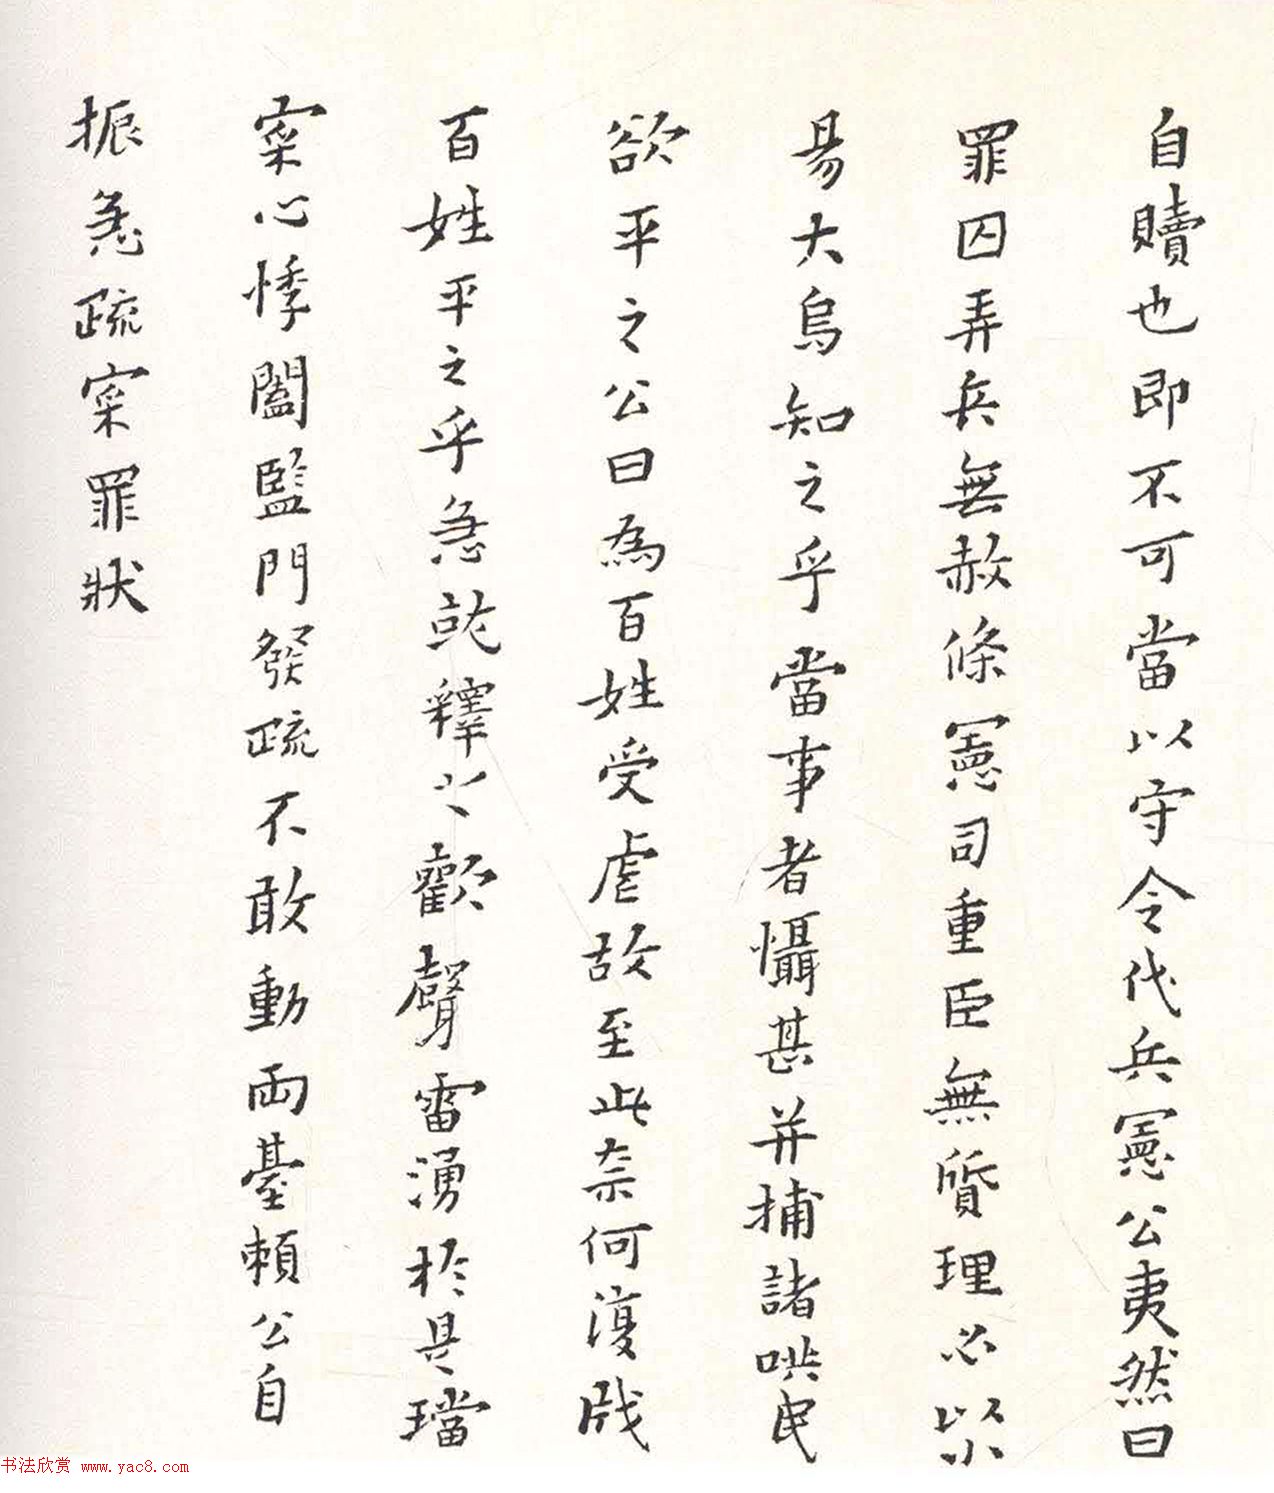 自贖也即不可當以守令代兵憲公夷然曰
罪囚弄兵無赦條憲司重臣無質理必以某
易大烏知之乎當事者懾甚并捕諸哄民
欲平之公曰為百姓受虐故至此柰何復戕
百姓平之乎急訛釋之歡聲雷湧於是璫
寀心悸闔監門發疏不敢動兩臺賴公自
振急疏寀罪狀
书法欣赏 www.yac8.com